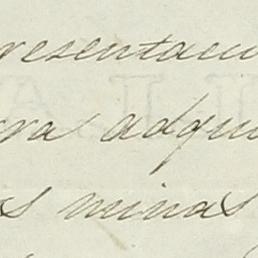 resentaci
rra adqui
as minas